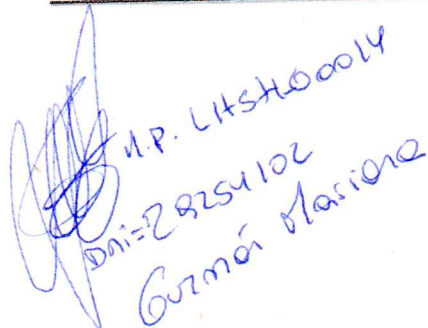 M.P. LHSH00014
DNI=29254102
Guzmán Mariana